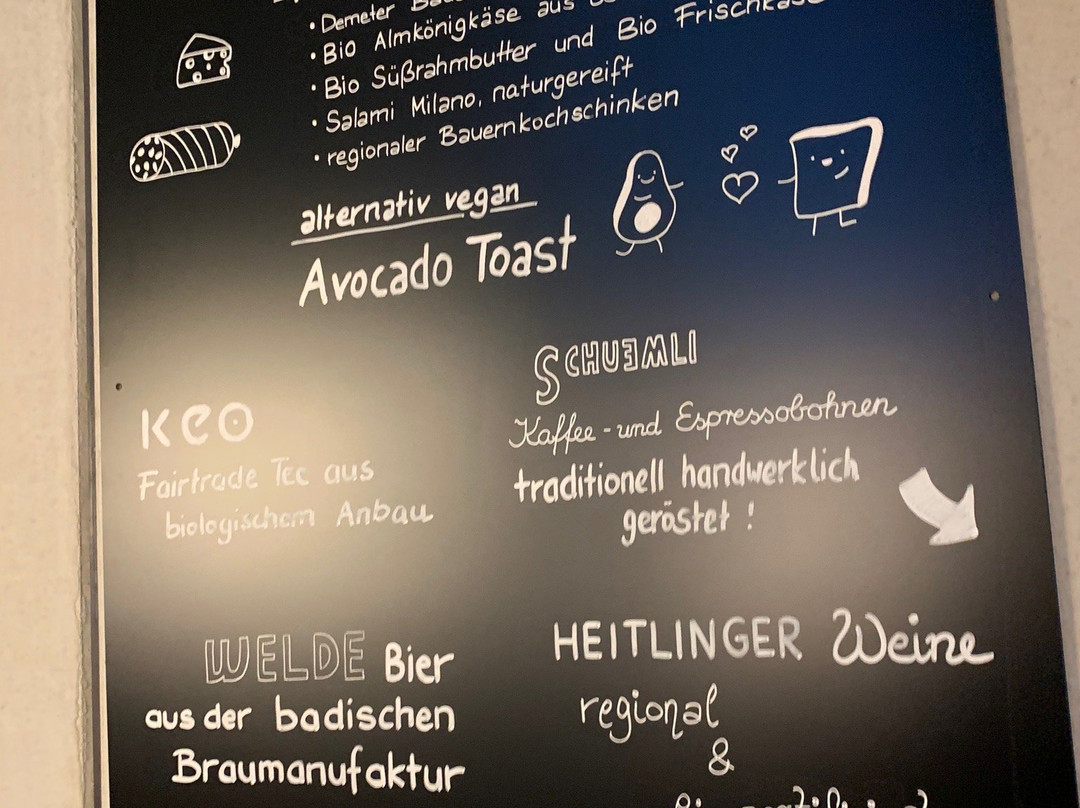 • Demeter
• Bio Almkönigkäse aus
• Bio Süßrahmbutter und Bio Frischkäse
• Salami Milano, naturgereift
• regionaler Bauernkochschinken
alternativ vegan
Avocado Toast
SCHUEMLI
Kaffee- und Espressobohnen
traditionell handwerklich
geröstet !
keo
Fairtrade Tee aus
biologischem Anbau
WELDE Bier
aus der badischen
Braumanufaktur
HEITLINGER Weine
regional
&